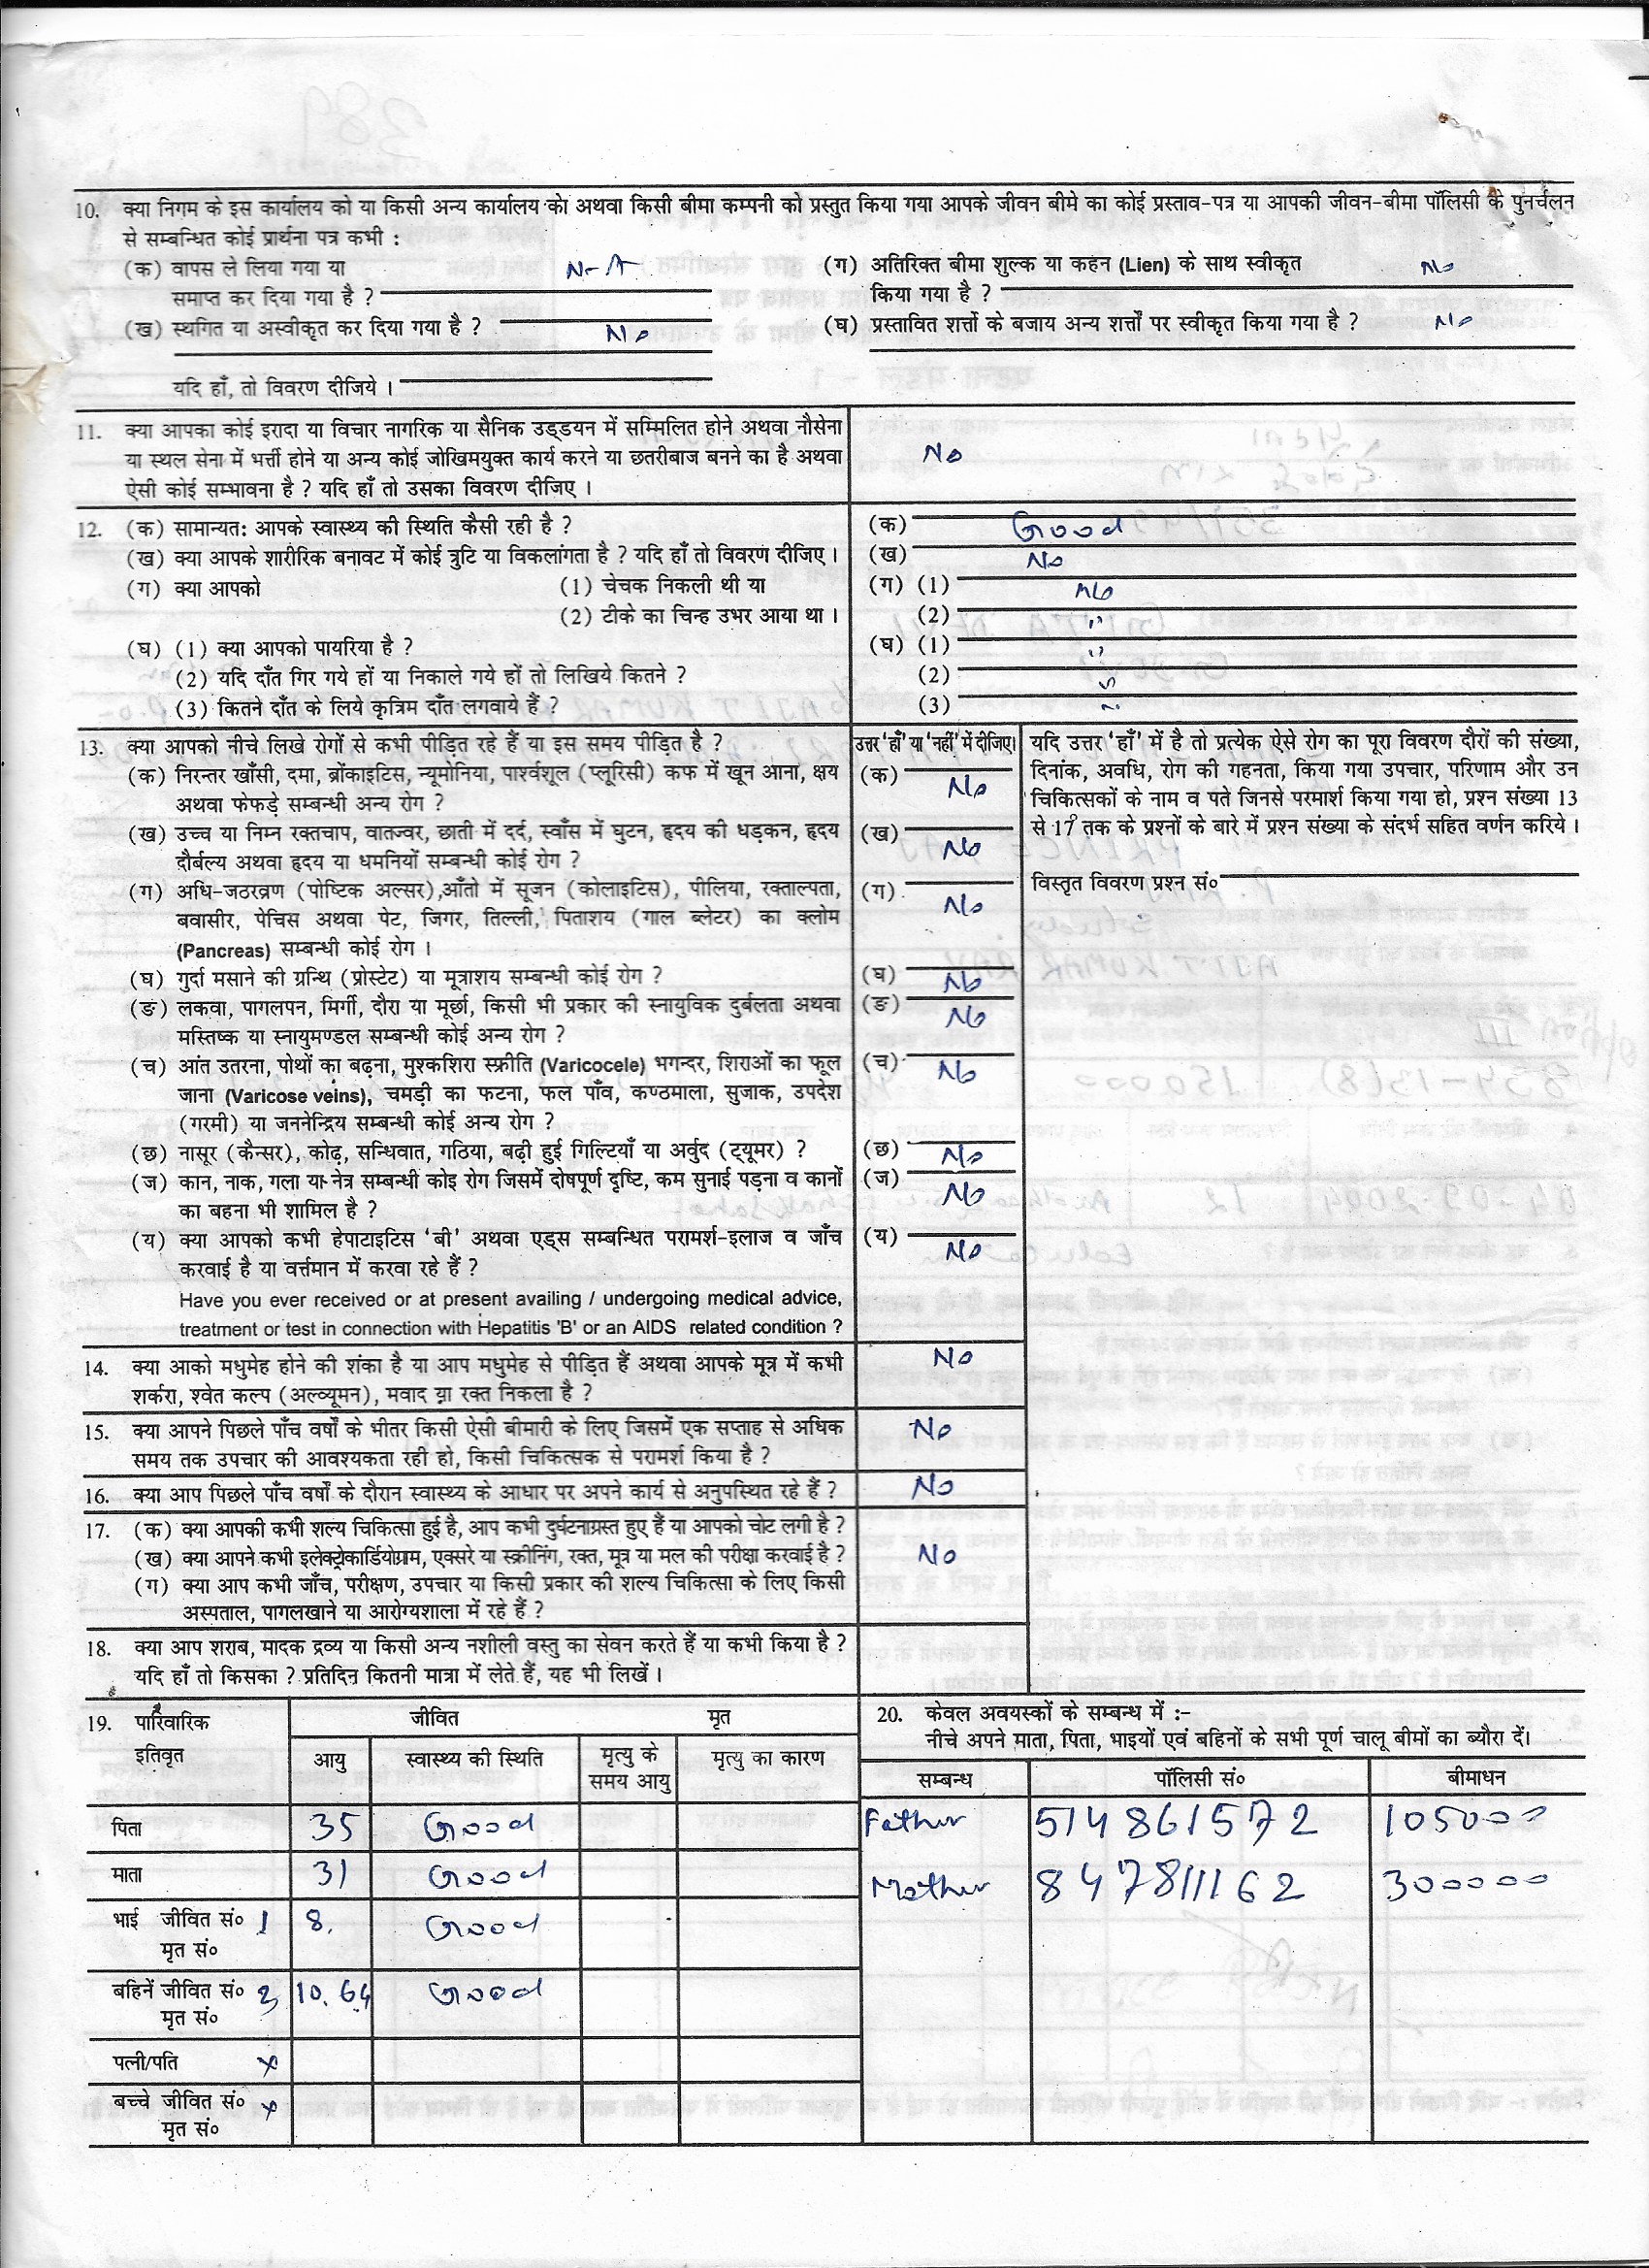 10. क्या निगम के इस कार्यालय को या किसी अन्य कार्यालय को अथवा किसी बीमा कम्पनी को प्रस्तुत किया गया आपके जीवन बीमे का कोई प्रस्ताव-पत्र या आपकी जीवन-बीमा पॉलिसी के पुनर्चलन
से सम्बन्धित कोई प्रार्थना पत्र कभी :
(क) वापस ले लिया गया या
समाप्त कर दिया गया है ? N-A
(ग) अतिरिक्त बीमा शुल्क या कहन (Lien) के साथ स्वीकृत
किया गया है ? No
(ख) स्थगित या अस्वीकृत कर दिया गया है ? No
(घ) प्रस्तावित शर्त्तो के बजाय अन्य शर्त्तों पर स्वीकृत किया गया है ? No
यदि हाँ, तो विवरण दीजिये ।
11. क्या आपका कोई इरादा या विचार नागरिक या सैनिक उड्डयन में सम्मिलित होने अथवा नौसेना
या स्थल सेना में भर्त्ती होने या अन्य कोई जोखिमयुक्त कार्य करने या छतरीबाज बनने का है अथवा No
ऐसी कोई सम्भावना है ? यदि हाँ तो उसका विवरण दीजिए ।
12. (क) सामान्यत: आपके स्वास्थ्य की स्थिति कैसी रही है ? (क) Good
(ख) क्या आपके शारीरिक बनावट में कोई त्रुटि या विकलांगता है ? यदि हाँ तो विवरण दीजिए । (ख) No
(ग) क्या आपको (1) चेचक निकली थी या (ग) (1) No
(2) टीके का चिन्ह उभर आया था । (2) "
(घ) (1) क्या आपको पायरिया है ? (घ) (1) "
(2) यदि दाँत गिर गये हों या निकाले गये हों तो लिखिये कितने ? (2)
(3) कितने दाँत के लिये कृत्रिम दाँत लगवाये हैं ? (3)
13. क्या आपको नीचे लिखे रोगों से कभी पीड़ित रहे हैं या इस समय पीड़ित है ? उत्तर 'हाँ' या 'नहीं' में दीजिए। यदि उत्तर 'हाँ' में है तो प्रत्येक ऐसे रोग का पूरा विवरण दौरों की संख्या,
दिनांक, अवधि, रोग की गहनता, किया गया उपचार, परिणाम और उन
चिकित्सकों के नाम व पते जिनसे परमार्श किया गया हो, प्रश्न संख्या 13
से 17 तक के प्रश्नों के बारे में प्रश्न संख्या के संदर्भ सहित वर्णन करिये ।
विस्तृत विवरण प्रश्न सं०
(क) निरन्तर खाँसी, दमा, ब्रोंकाइटिस, न्यूमोनिया, पार्श्वशूल (प्लूरिसी) कफ में खून आना, क्षय (क) No
अथवा फेफड़े सम्बन्धी अन्य रोग ?
(ख) उच्च या निम्न रक्तचाप, वातज्वर, छाती में दर्द, स्वाँस में घुटन, हृदय की धड़कन, हृदय (ख) No
दौर्बल्य अथवा हृदय या धमनियों सम्बन्धी कोई रोग ?
(ग) अधि-जठरव्रण (पोष्टिक अल्सर),आँतो में सूजन (कोलाइटिस), पीलिया, रक्ताल्पता, (ग) No
बवासीर, पेचिस अथवा पेट, जिगर, तिल्ली, पिताशय (गाल ब्लेटर) का क्लोम
(Pancreas) सम्बन्धी कोई रोग ।
(घ) गुर्दा मसाने की ग्रन्थि (प्रोस्टेट) या मूत्राशय सम्बन्धी कोई रोग ? (घ) No
(ङ) लकवा, पागलपन, मिर्गी, दौरा या मूर्छा, किसी भी प्रकार की स्नायुविक दुर्बलता अथवा (ङ) No
मस्तिष्क या स्नायुमण्डल सम्बन्धी कोई अन्य रोग ?
(च) आंत उतरना, पोथों का बढ़ना, मुश्कशिरा स्फ्रीति (Varicocele) भगन्दर, शिराओं का फूल (च) No
जाना (Varicose veins), चमड़ी का फटना, फल पाँव, कण्ठमाला, सुजाक, उपदेश
(गरमी) या जननेन्द्रिय सम्बन्धी कोई अन्य रोग ?
(छ) नासूर (कैन्सर), कोढ़, सन्धिवात, गठिया, बढ़ी हुई गिल्टियाँ या अर्वुद (ट्यूमर) ? (छ) No
(ज) कान, नाक, गला या नेत्र सम्बन्धी कोइ रोग जिसमें दोषपूर्ण दृष्टि, कम सुनाई पड़ना व कानों (ज) No
का बहना भी शामिल है ?
(य) क्या आपको कभी हेपाटाइटिस 'बी' अथवा एड्स सम्बन्धित परामर्श-इलाज व जाँच (य) No
करवाई है या वर्त्तमान में करवा रहे हैं ?
Have you ever received or at present availing / undergoing medical advice,
treatment or test in connection with Hepatitis 'B' or an AIDS related condition ?
14. क्या आको मधुमेह होने की शंका है या आप मधुमेह से पीड़ित हैं अथवा आपके मूत्र में कभी No
शर्करा, श्वेत कल्प (अल्व्यूमन), मवाद या रक्त निकला है ?
15. क्या आपने पिछले पाँच वर्षों के भीतर किसी ऐसी बीमारी के लिए जिसमें एक सप्ताह से अधिक No
समय तक उपचार की आवश्यकता रही हो, किसी चिकित्सक से परामर्श किया है ?
16. क्या आप पिछले पाँच वर्षों के दौरान स्वास्थ्य के आधार पर अपने कार्य से अनुपस्थित रहे हैं ? No
17. (क) क्या आपकी कभी शल्य चिकित्सा हुई है, आप कभी दुर्घटनाग्रस्त हुए हैं या आपको चोट लगी है ?
(ख) क्या आपने कभी इलेक्ट्रेकार्डियोग्राम, एक्सरे या स्क्रीनिंग, रक्त, मूत्र या मल की परीक्षा करवाई है ? No
(ग) क्या आप कभी जाँच, परीक्षण, उपचार या किसी प्रकार की शल्य चिकित्सा के लिए किसी
अस्पताल, पागलखाने या आरोग्यशाला में रहे हैं ?
18. क्या आप शराब, मादक द्रव्य या किसी अन्य नशीली वस्तु का सेवन करते हैं या कभी किया है ?
यदि हाँ तो किसका ? प्रतिदिन कितनी मात्रा में लेते हैं, यह भी लिखें ।
19. पारिवारिक इतिवृत जीवित मृत
आयु स्वास्थ्य की स्थिति मृत्यु के समय आयु मृत्यु का कारण
पिता 35 Good
माता 31 Good
भाई जीवित सं० 1 8. Good
मृत सं०
बहिनें जीवित सं० 3 10. 6 4 Good
मृत सं०
पत्नी/पति x
बच्चे जीवित सं० x
मृत सं०
20. केवल अवयस्कों के सम्बन्ध में :-
नीचे अपने माता, पिता, भाइयों एवं बहिनों के सभी पूर्ण चालू बीमों का ब्यौरा दें।
सम्बन्ध पॉलिसी सं० बीमाधन
Father 514861572 105000
Mother 847811162 300000